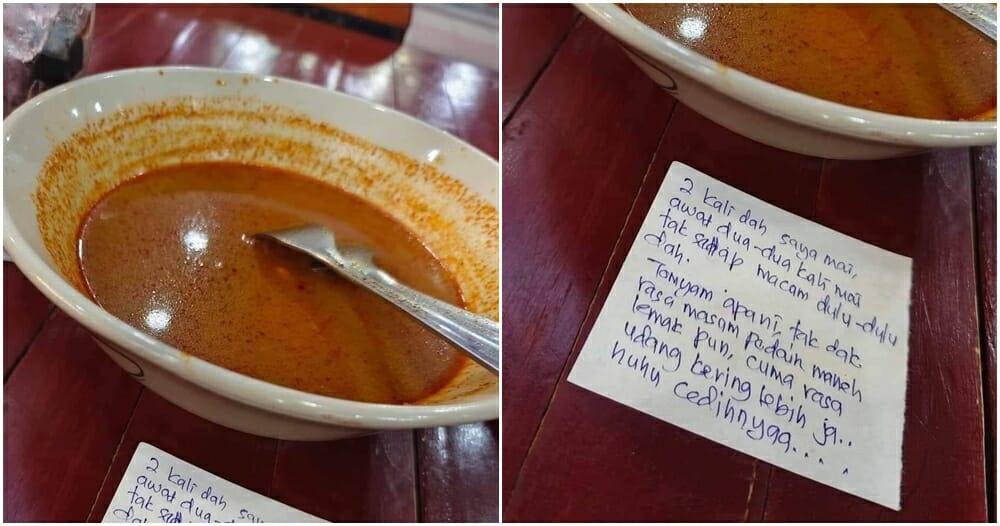 2 kali dah saya
awat dua-du
tak sedap
2 kali dah saya mai,
awat dua-dua kali mai
tak sedap macam dulu-dulu
dah.
Tomyam apa ni, tak dak
rasa masam padain maneh
lemak pun, cuma rasa
udang kering lebih ja..
huhu cedihnyaa....